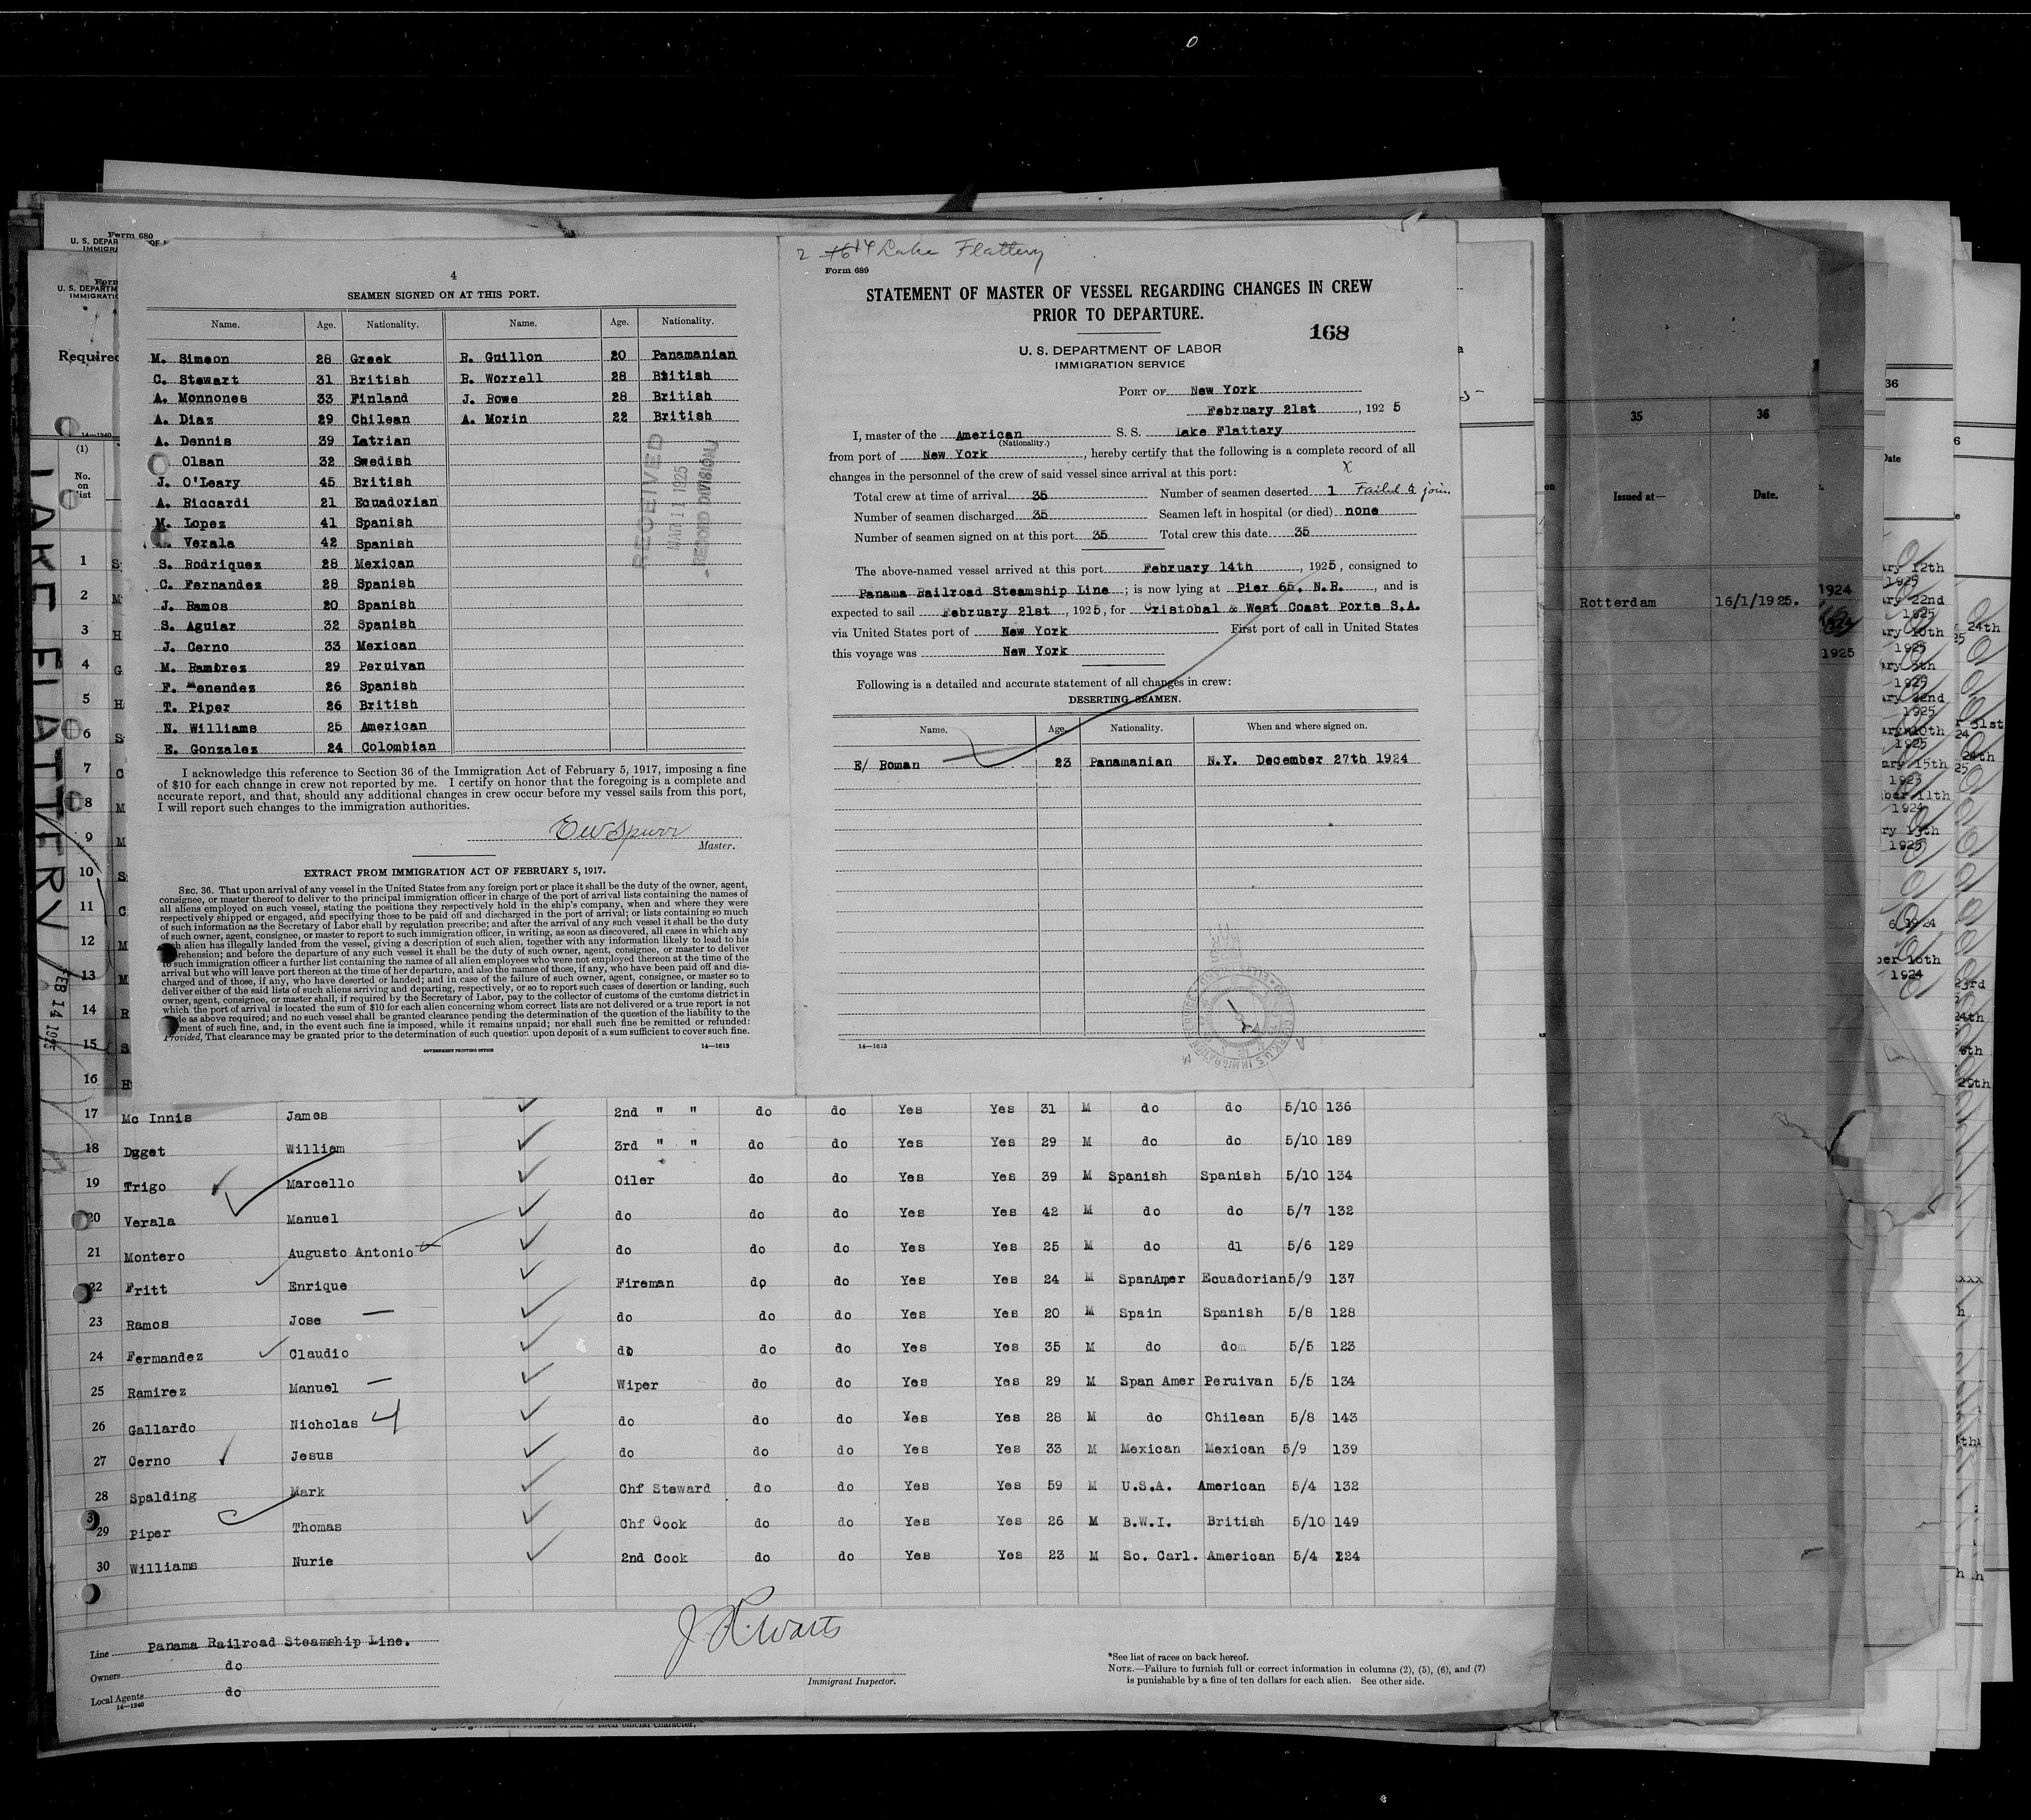 Form 680
U. S. DEPAR
IMMIGRA
Form
U. S. DEPARTM
IMMIGRATIO
Required
14—1240
(1)
No.
on
list
LAKE FLATTERY
FEB 14 1925
4
SEAMEN SIGNED ON AT THIS PORT.
Name. Age. Nationality. Name. Age. Nationality.
M. Simeon 28 Greek R. Guillon 20 Panamanian
C. Stewart 31 British R. Worrell 28 British
A. Monnones 33 Finland J. Rowe 28 British
A. Diaz 29 Chilean A. Morin 22 British
A. Dennis 39 Latrian
Olsan 32 Swedish
J. O'Leary 45 British
A. Riccardi 21 Ecuadorian
M. Lopez 41 Spanish
Verala 42 Spanish
S. Rodriquez 28 Mexican
C. Fernandez 28 Spanish
J. Ramos 20 Spanish
S. Aguiar 32 Spanish
J. Cerno 33 Mexican
M. Ramirez 29 Peruivan
F. Menendez 26 Spanish
T. Piper 26 British
N. Williams 25 American
E. Gonzalez 24 Colombian
RECEIVED
MAR 11 1925
RECORD DIVISION
I acknowledge this reference to Section 36 of the Immigration Act of February 5, 1917, imposing a fine
of $10 for each change in crew not reported by me. I certify on honor that the foregoing is a complete and
accurate report, and that, should any additional changes in crew occur before my vessel sails from this port,
I will report such changes to the immigration authorities.
E W Spurr
Master.
EXTRACT FROM IMMIGRATION ACT OF FEBRUARY 5, 1917.
SEC. 36. That upon arrival of any vessel in the United States from any foreign port or place it shall be the duty of the owner, agent,
consignee, or master thereof to deliver to the principal immigration officer in charge of the port of arrival lists containing the names of
all aliens employed on such vessel, stating the positions they respectively hold in the ship's company, when and where they were
respectively shipped or engaged, and specifying those to be paid off and discharged in the port of arrival; or lists containing so much
of such information as the Secretary of Labor shall by regulation prescribe; and after the arrival of any such vessel it shall be the duty
of such owner, agent, consignee, or master to report to such immigration officer, in writing, as soon as discovered, all cases in which any
such alien has illegally landed from the vessel, giving a description of such alien, together with any information likely to lead to his
prehension; and before the departure of any such vessel it shall be the duty of such owner, agent, consignee, or master to deliver
to such immigration officer a further list containing the names of all alien employees who were not employed thereon at the time of the
arrival but who will leave port thereon at the time of her departure, and also the names of those, if any, who have been paid off and dis-
charged and of those, if any, who have deserted or landed; and in case of the failure of such owner, agent, consignee, or master so to
deliver either of the said lists of such aliens arriving and departing, respectively, or so to report such cases of desertion or landing, such
owner, agent, consignee, or master shall, if required by the Secretary of Labor, pay to the collector of customs of the customs district in
which the port of arrival is located the sum of $10 for each alien concerning whom correct lists are not delivered or a true report is not
de as above required; and no such vessel shall be granted clearance pending the determination of the question of the liability to the
ment of such fine, and, in the event such fine is imposed, while it remains unpaid; nor shall such fine be remitted or refunded:
Provided, That clearance may be granted prior to the determination of such question upon deposit of a sum sufficient to cover such fine.
GOVERNMENT PRINTING OFFICE 14—1613
2 1614 Lake Flattery
Form 689
STATEMENT OF MASTER OF VESSEL REGARDING CHANGES IN CREW
PRIOR TO DEPARTURE.
168
U. S. DEPARTMENT OF LABOR
IMMIGRATION SERVICE
PORT OF New York
February 21st, 1925
I, master of the American S. S. Lake Flattery
(Nationality.)
from port of New York, hereby certify that the following is a complete record of all
changes in the personnel of the crew of said vessel since arrival at this port: X
Total crew at time of arrival 35 Number of seamen deserted 1 Failed to join.
Number of seamen discharged 35 Seamen left in hospital (or died) none
Number of seamen signed on at this port 35 Total crew this date 35
The above-named vessel arrived at this port February 14th, 1925, consigned to
Panama Railroad Steamship Line; is now lying at Pier 65, N.R., and is
expected to sail February 21st, 1925, for Cristobal & West Coast Ports S.A.
via United States port of New York First port of call in United States
this voyage was New York
Following is a detailed and accurate statement of all changes in crew:
DESERTING SEAMEN.
Name. Age. Nationality. When and where signed on.
E/ Roman 23 Panamanian N.Y. December 27th 1924
14—1613
1 S
2 M
3 H
4 G
5 H
6 S
7 C
8 M
9 M
10 S
11 C
12 M
13 M
14 R
15 S
16 H
17 Mc Innis James 2nd " " do do Yes Yes 31 M do do 5/10 136
18 Dgget William 3rd " " do do Yes Yes 29 M do do 5/10 189
19 Trigo Marcello Oiler do do Yes Yes 39 M Spanish Spanish 5/10 134
20 Verala Manuel do do do Yes Yes 42 M do do 5/7 132
21 Montero Augusto Antonio do do do Yes Yes 25 M do dl 5/6 129
22 Fritt Enrique Fireman do do Yes Yes 24 M SpanAmer Ecuadorian 5/9 137
23 Ramos Jose do do do Yes Yes 20 M Spain Spanish 5/8 128
24 Fermandez Claudio do do do Yes Yes 35 M do dom 5/5 123
25 Ramirez Manuel Wiper do do Yes Yes 29 M Span Amer Peruivan 5/5 134
26 Gallardo Nicholas do do do Yes Yes 28 M do Chilean 5/8 143
27 Cerno Jesus do do do Yes Yes 33 M Mexican Mexican 5/9 139
28 Spalding Mark Chf Steward do do Yes Yes 59 M U.S.A. American 5/4 132
29 Piper Thomas Chf Cook do do Yes Yes 26 M B.W.I. British 5/10 149
30 Williams Nurie 2nd Cook do do Yes Yes 23 M So. Carl. American 5/4 224
Line Panama Railroad Steamship Line.
Owners do
Local Agents do
14—1240
Immigrant Inspector.
*See list of races on back hereof.
NOTE.—Failure to furnish full or correct information in columns (2), (5), (6), and (7)
is punishable by a fine of ten dollars for each alien. See other side.
35 36
Issued at— Date.
Rotterdam 16/1/1925.
1924
1925
36
Date